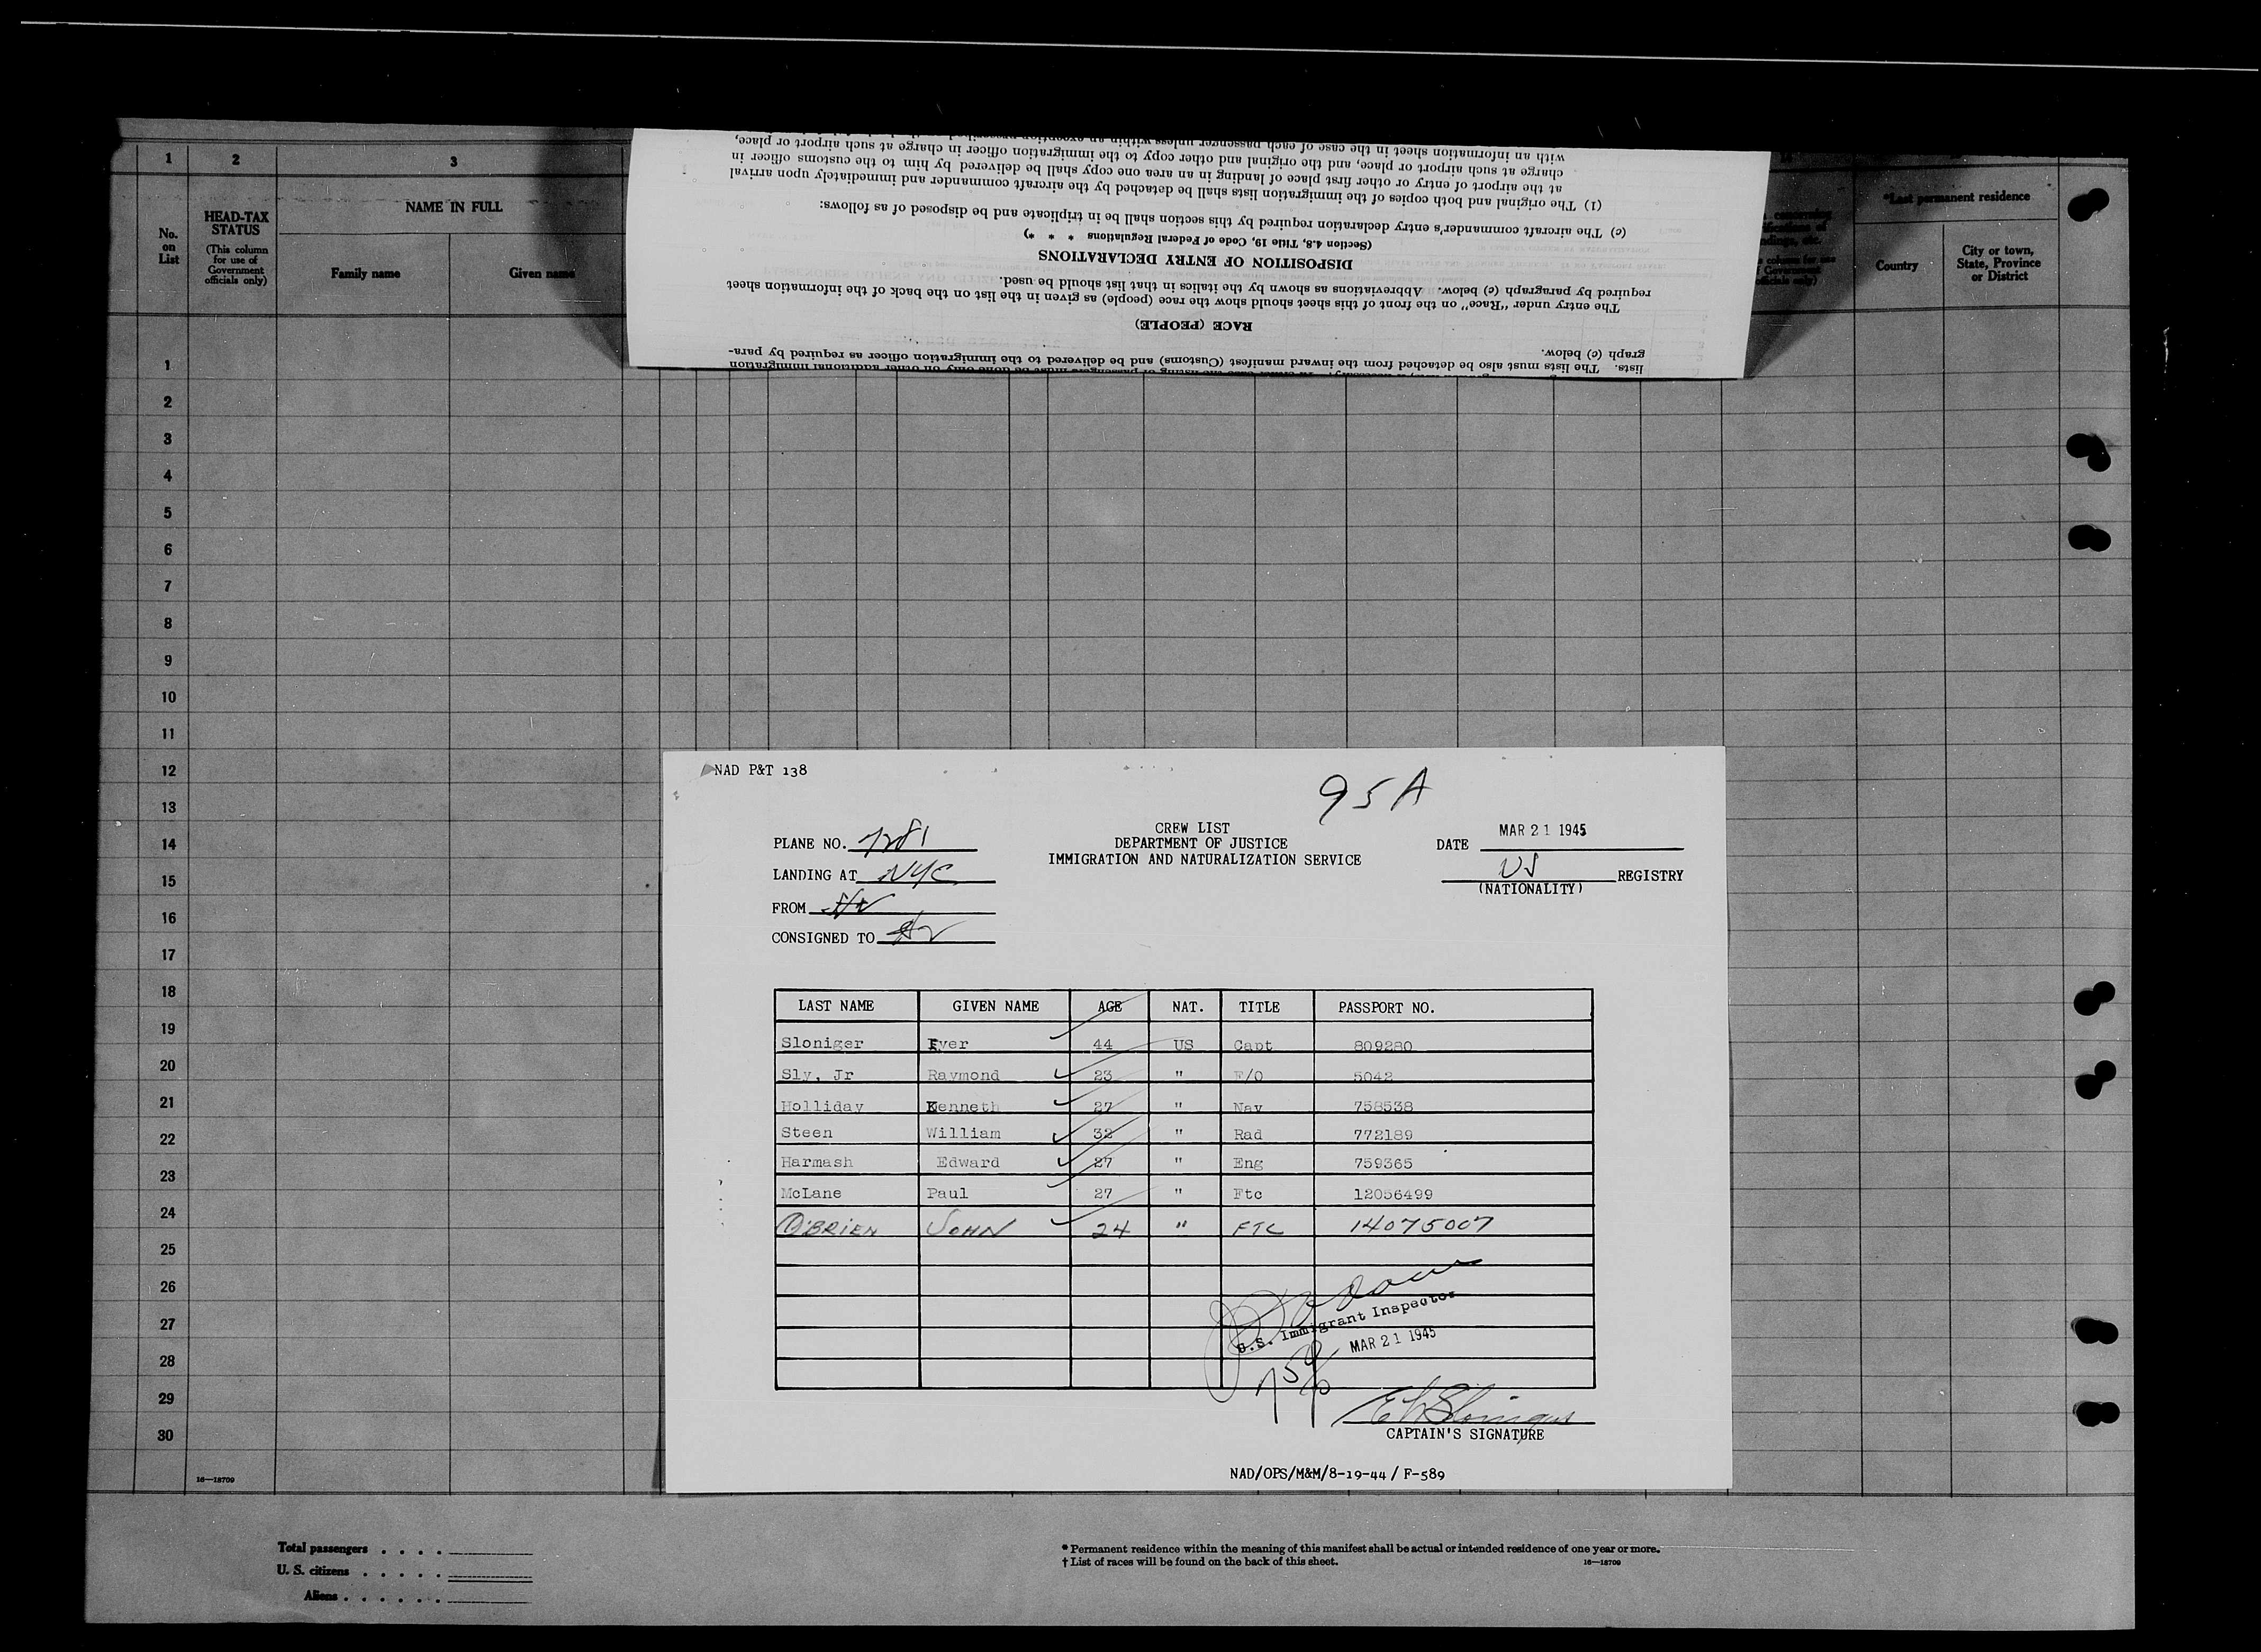 1 2 3
HEAD-TAX STATUS
(This column for use of Government officials only)
No. on List
NAME IN FULL
Family name Given name
with an information sheet in the case of each passenger unless within an exception
charge at such airport or place, and the original and other copy to the immigration officer in charge at such airport or place,
at the airport of entry or other first place of landing in an area one copy shall be delivered by him to the customs officer in
(1) The original and both copies of the immigration lists shall be detached by the aircraft commander and immediately upon arrival
(c) The aircraft commander's entry declaration required by this section shall be in triplicate and be disposed of as follows:
(Section 4.8, Title 19, Code of Federal Regulations * * *)
DISPOSITION OF ENTRY DECLARATIONS
required by paragraph (c) below. Abbreviations as shown by the italics in that list should be used.
The entry under "Race" on the front of this sheet should show the race (people) as given in the list on the back of the information sheet
RACE (PEOPLE)
graph (c) below.
lists. The lists must also be detached from the inward manifest (Customs) and be delivered to the immigration officer as required by para-
*Last permanent residence
Country
City or town, State, Province or District
1
2
3
4
5
6
7
8
9
10
11
12
13
14
15
16
17
18
19
20
21
22
23
24
25
26
27
28
29
30
16—18709
NAD P&T 138
95A
CREW LIST
DEPARTMENT OF JUSTICE
IMMIGRATION AND NATURALIZATION SERVICE
PLANE NO. 7281
LANDING AT NYC
FROM
CONSIGNED TO
DATE MAR 21 1945
US REGISTRY
(NATIONALITY)
LAST NAME GIVEN NAME AGE NAT. TITLE PASSPORT NO.
Sloniger Eyer 44 US Capt 809280
Sly, Jr Raymond 23 " F/O 5042
Holliday Kenneth 27 " Nav 758538
Steen William 32 " Rad 772189
Harmash Edward 27 " Eng 759365
McLane Paul 27 " Ftc 12056499
O'BRIEN JOHN 24 " FTC 14075007
U.S. Immigrant Inspector
MAR 21 1945
CAPTAIN'S SIGNATURE
NAD/OPS/M&M/8-19-44 / F-589
Total passengers . . . .
U. S. citizens . . . . .
Aliens . . . . . .
* Permanent residence within the meaning of this manifest shall be actual or intended residence of one year or more.
† List of races will be found on the back of this sheet.
16—18709